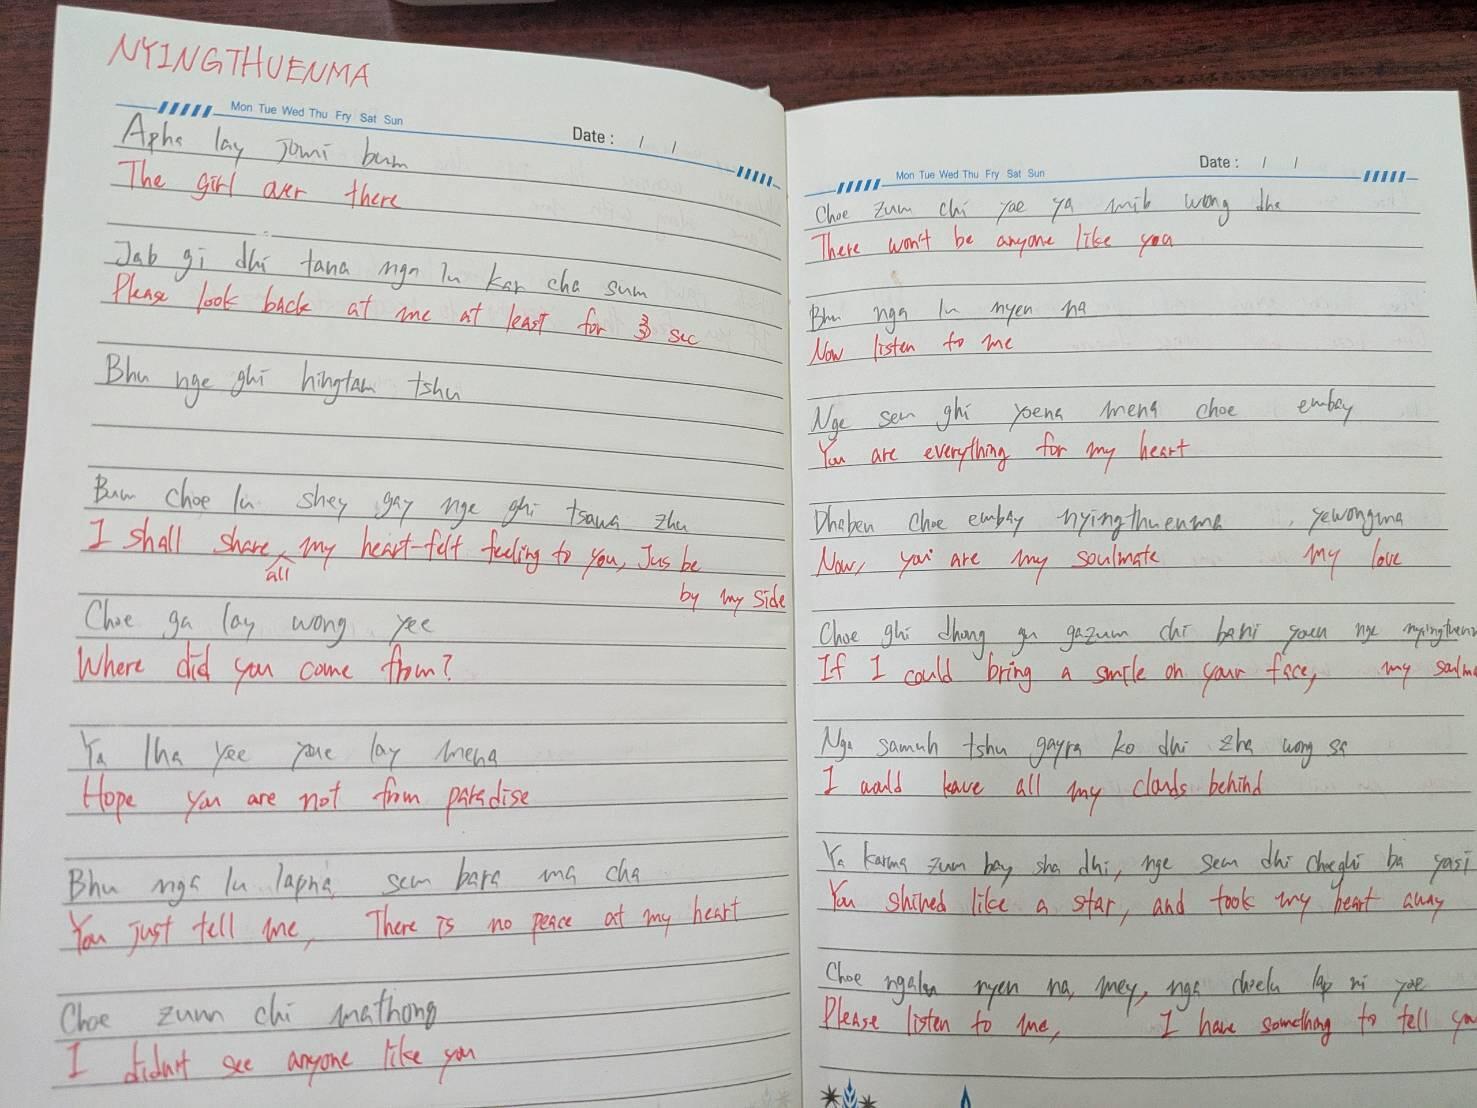 NYINGTHUENMA
Mon Tue Wed Thu Fry Sat Sun
Date : / /
Apha lay jomi bum
The girl over there
Jab gi dhi tana nga lu kar cha sum
Please look back at me at least for 3 sec
Bhu nge ghi hingtam tshu
Bum choe lu shey gay nge ghi tsawa zhu
I shall share all my heart-felt feeling to you, Jus be
by my side
Choe ga lay wong yee
Where did you come from?
Ya lha yee yue lay mena
Hope you are not from paradise
Bhu nga lu lapha, sem bara ma cha
You just tell me, There is no peace at my heart
Choe zum chi mathong
I didn't see anyone like you
Mon Tue Wed Thu Fry Sat Sun
Date : / /
Choe zum chi yae ya mib wong dha
There won't be anyone like you
Bhu nga lu nyen na
Now listen to me
Nge sem ghi yoena mena choe embay
You are everything for my heart
Dhabeu choe embay nyingthuenma, yewongma
Now, you are my soulmate my love
Choe ghi dhong gu gazum chi bani yoeu nge nyingthuenm
If I could bring a smile on your face, my soulma
Nga samuh tshu gayra ko dhi zha wong sa
I would leave all my clouds behind
Ya karma zum bay sha dhi, nge sem dhi choeghi ba yasi
You shined like a star, and took my heart away
Choe ngalu nyen na, mey, nga choelu lap ni yoe
Please listen to me, I have something to tell yo